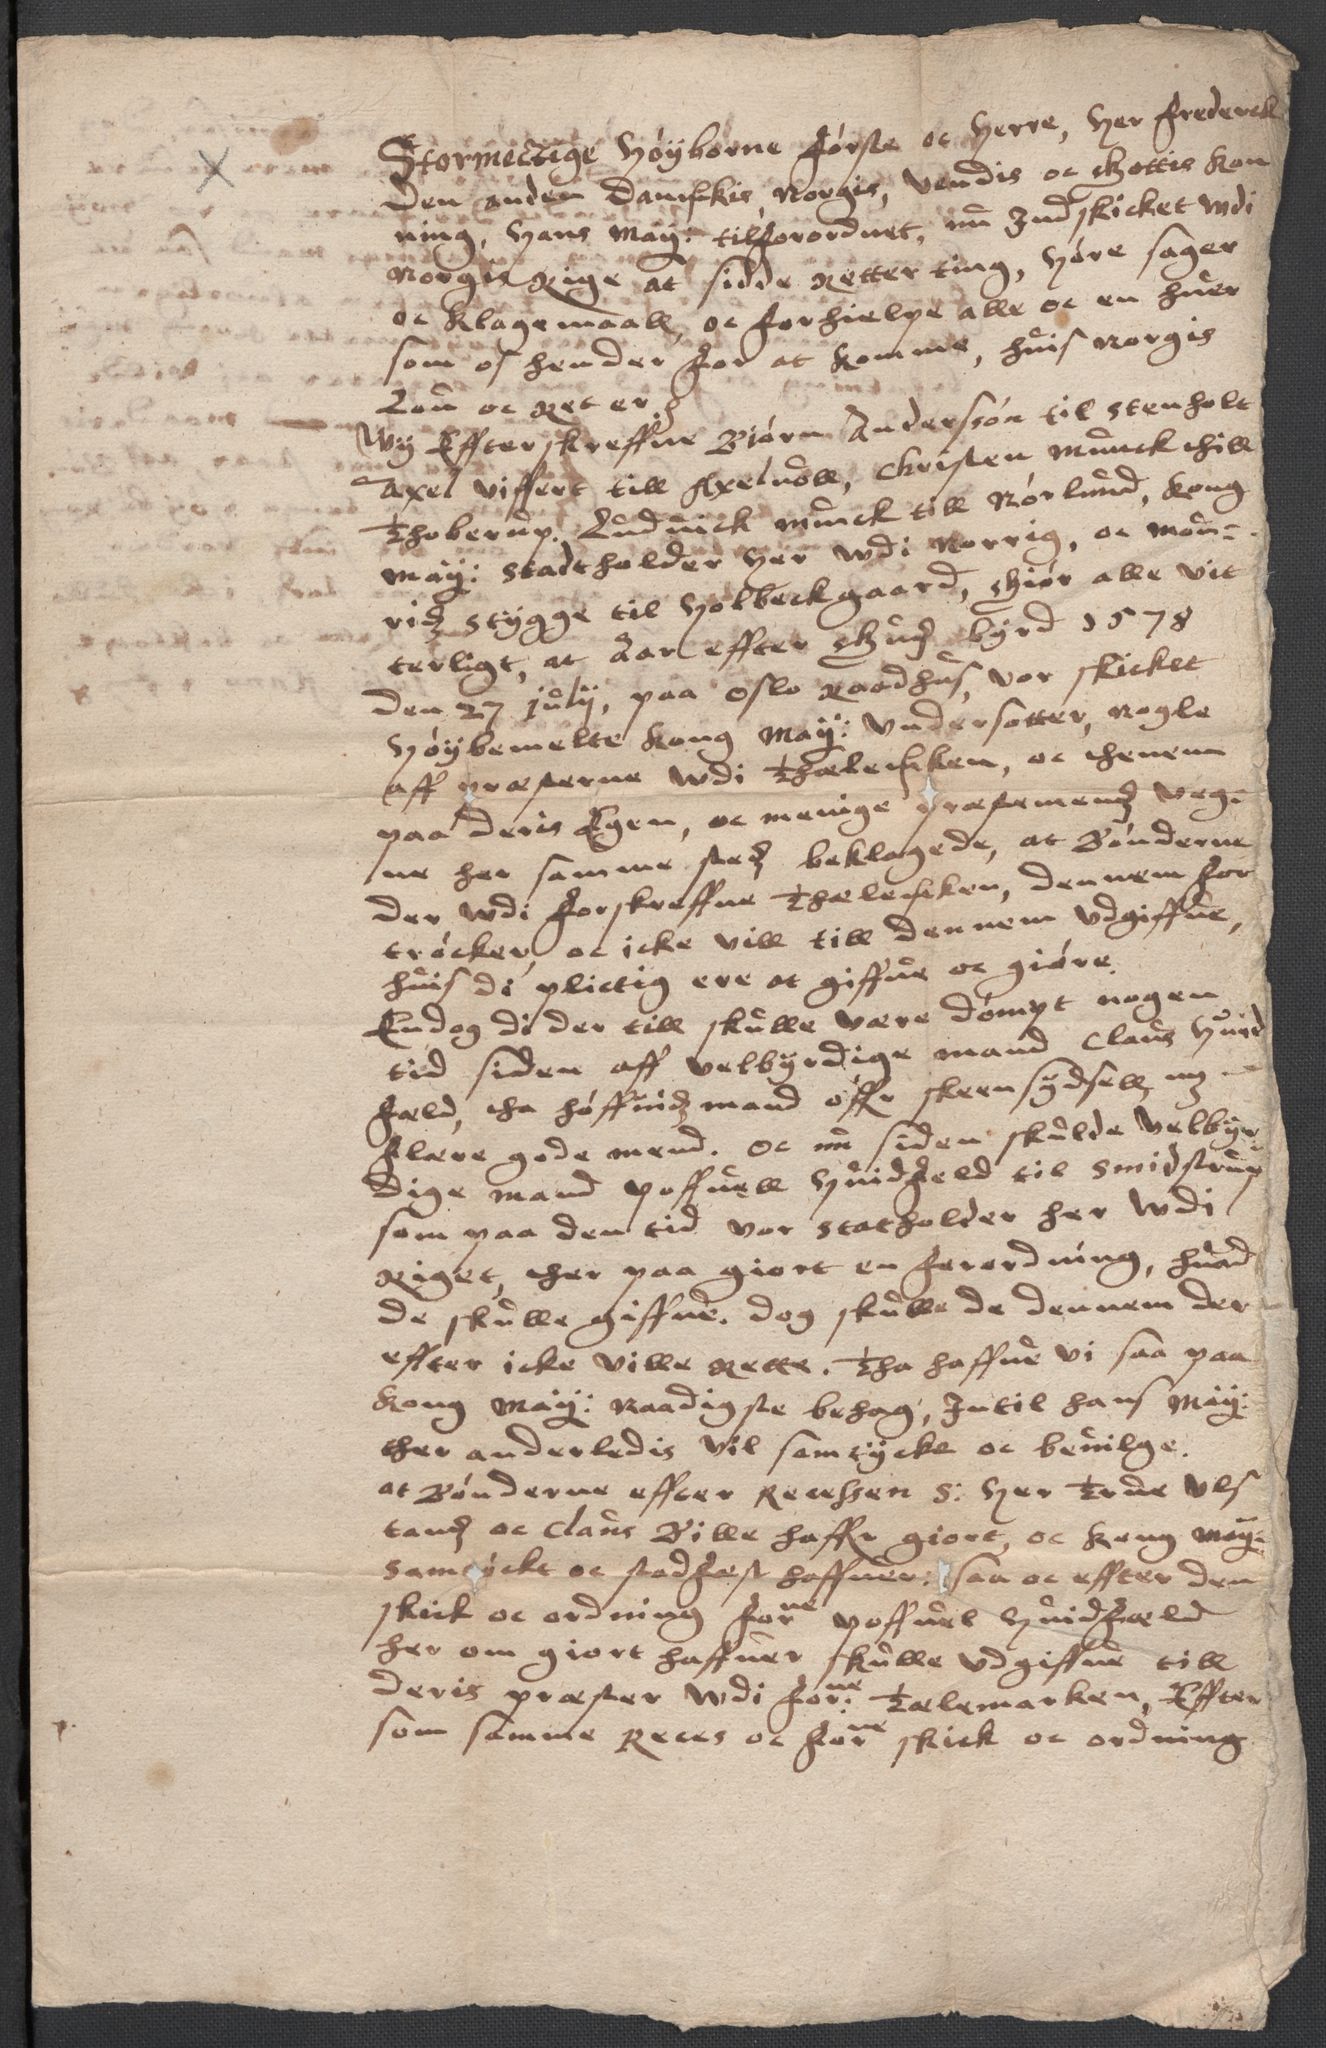 Stormectige Høÿborne første oc Herre, Her Frederck
den anden Danskis, Norgis, Vendis oc Gottis Kon
ning, Hans Maÿ: tilforordnet, nu Indskicket wdi
Norgis Rige at sidde Retterting, Høre sager
oc Klagemaall, oc forhielpe alle oc en huer
som os hender for at komme, huis Norgis
Lou oc Ret er.
Wÿ Effterskreffne Biørn Anderssøn til Stenholt
Axel Viffert till Axeluoll, Christen Munck thill
Thoberup. Luduick Munck till Nørlund, Kong
Maÿ: Stadtholder her wdi Norrig, oc Mou=
ridz Stÿgge til Holbeckgaard, Giør alle vit
terligt, at Aar effter Gudz bÿrd 1578
den 27 Julÿ, paa Oslo Raadhus, vor skicket
Høÿbemelte Kong Maÿ: Vndersotter, nogle
aff præsterne wdi Thelemcken, oc thenem
paa deris Egen, oc menige præstemendz veg=
ne her samme stedz beklagede, at Bønderne
der wdi forskreffne Thælemcken, dennem for
trøcker, oc icke vill till dennem vdgiffue,
huis di plictig ere at giffue oc giøre.
Endog di der till skulle være dømpt nogen
tid siden aff velbÿrdige mand Claus Huid
feld, tha høffuidzmand offr Skeen sÿdsell, mz
flere gode mend. Oc nu siden skulde velbÿr
dige mand Poffuell Huidfeld til Smidstrup
som paa den tid vor Statholder her wdi
Riget, ther paa giort en forordning, huad
de skulle giffue. Dog skulle de dennem der
effter icke ville Rette. Tha haffue vi saa paa
Kong Maÿ: Naadigste behag, Intil hans Maÿ:
ther anderledis vil samtÿcke oc beuilge.
at Bønderne effter Recessen S: Her True Vls
tandz oc Claus Bille haffr giort, oc Kong Maÿ:
Samtÿckt oc stadfæst haffuer: saa oc effter den
skick oc ordning forne Poffuel Huidfæld
her om giort haffuer skulle vdgiffue till
deris præster wdi forne: Tælemarken, Effter
som samme Reces oc forne skick oc ordning